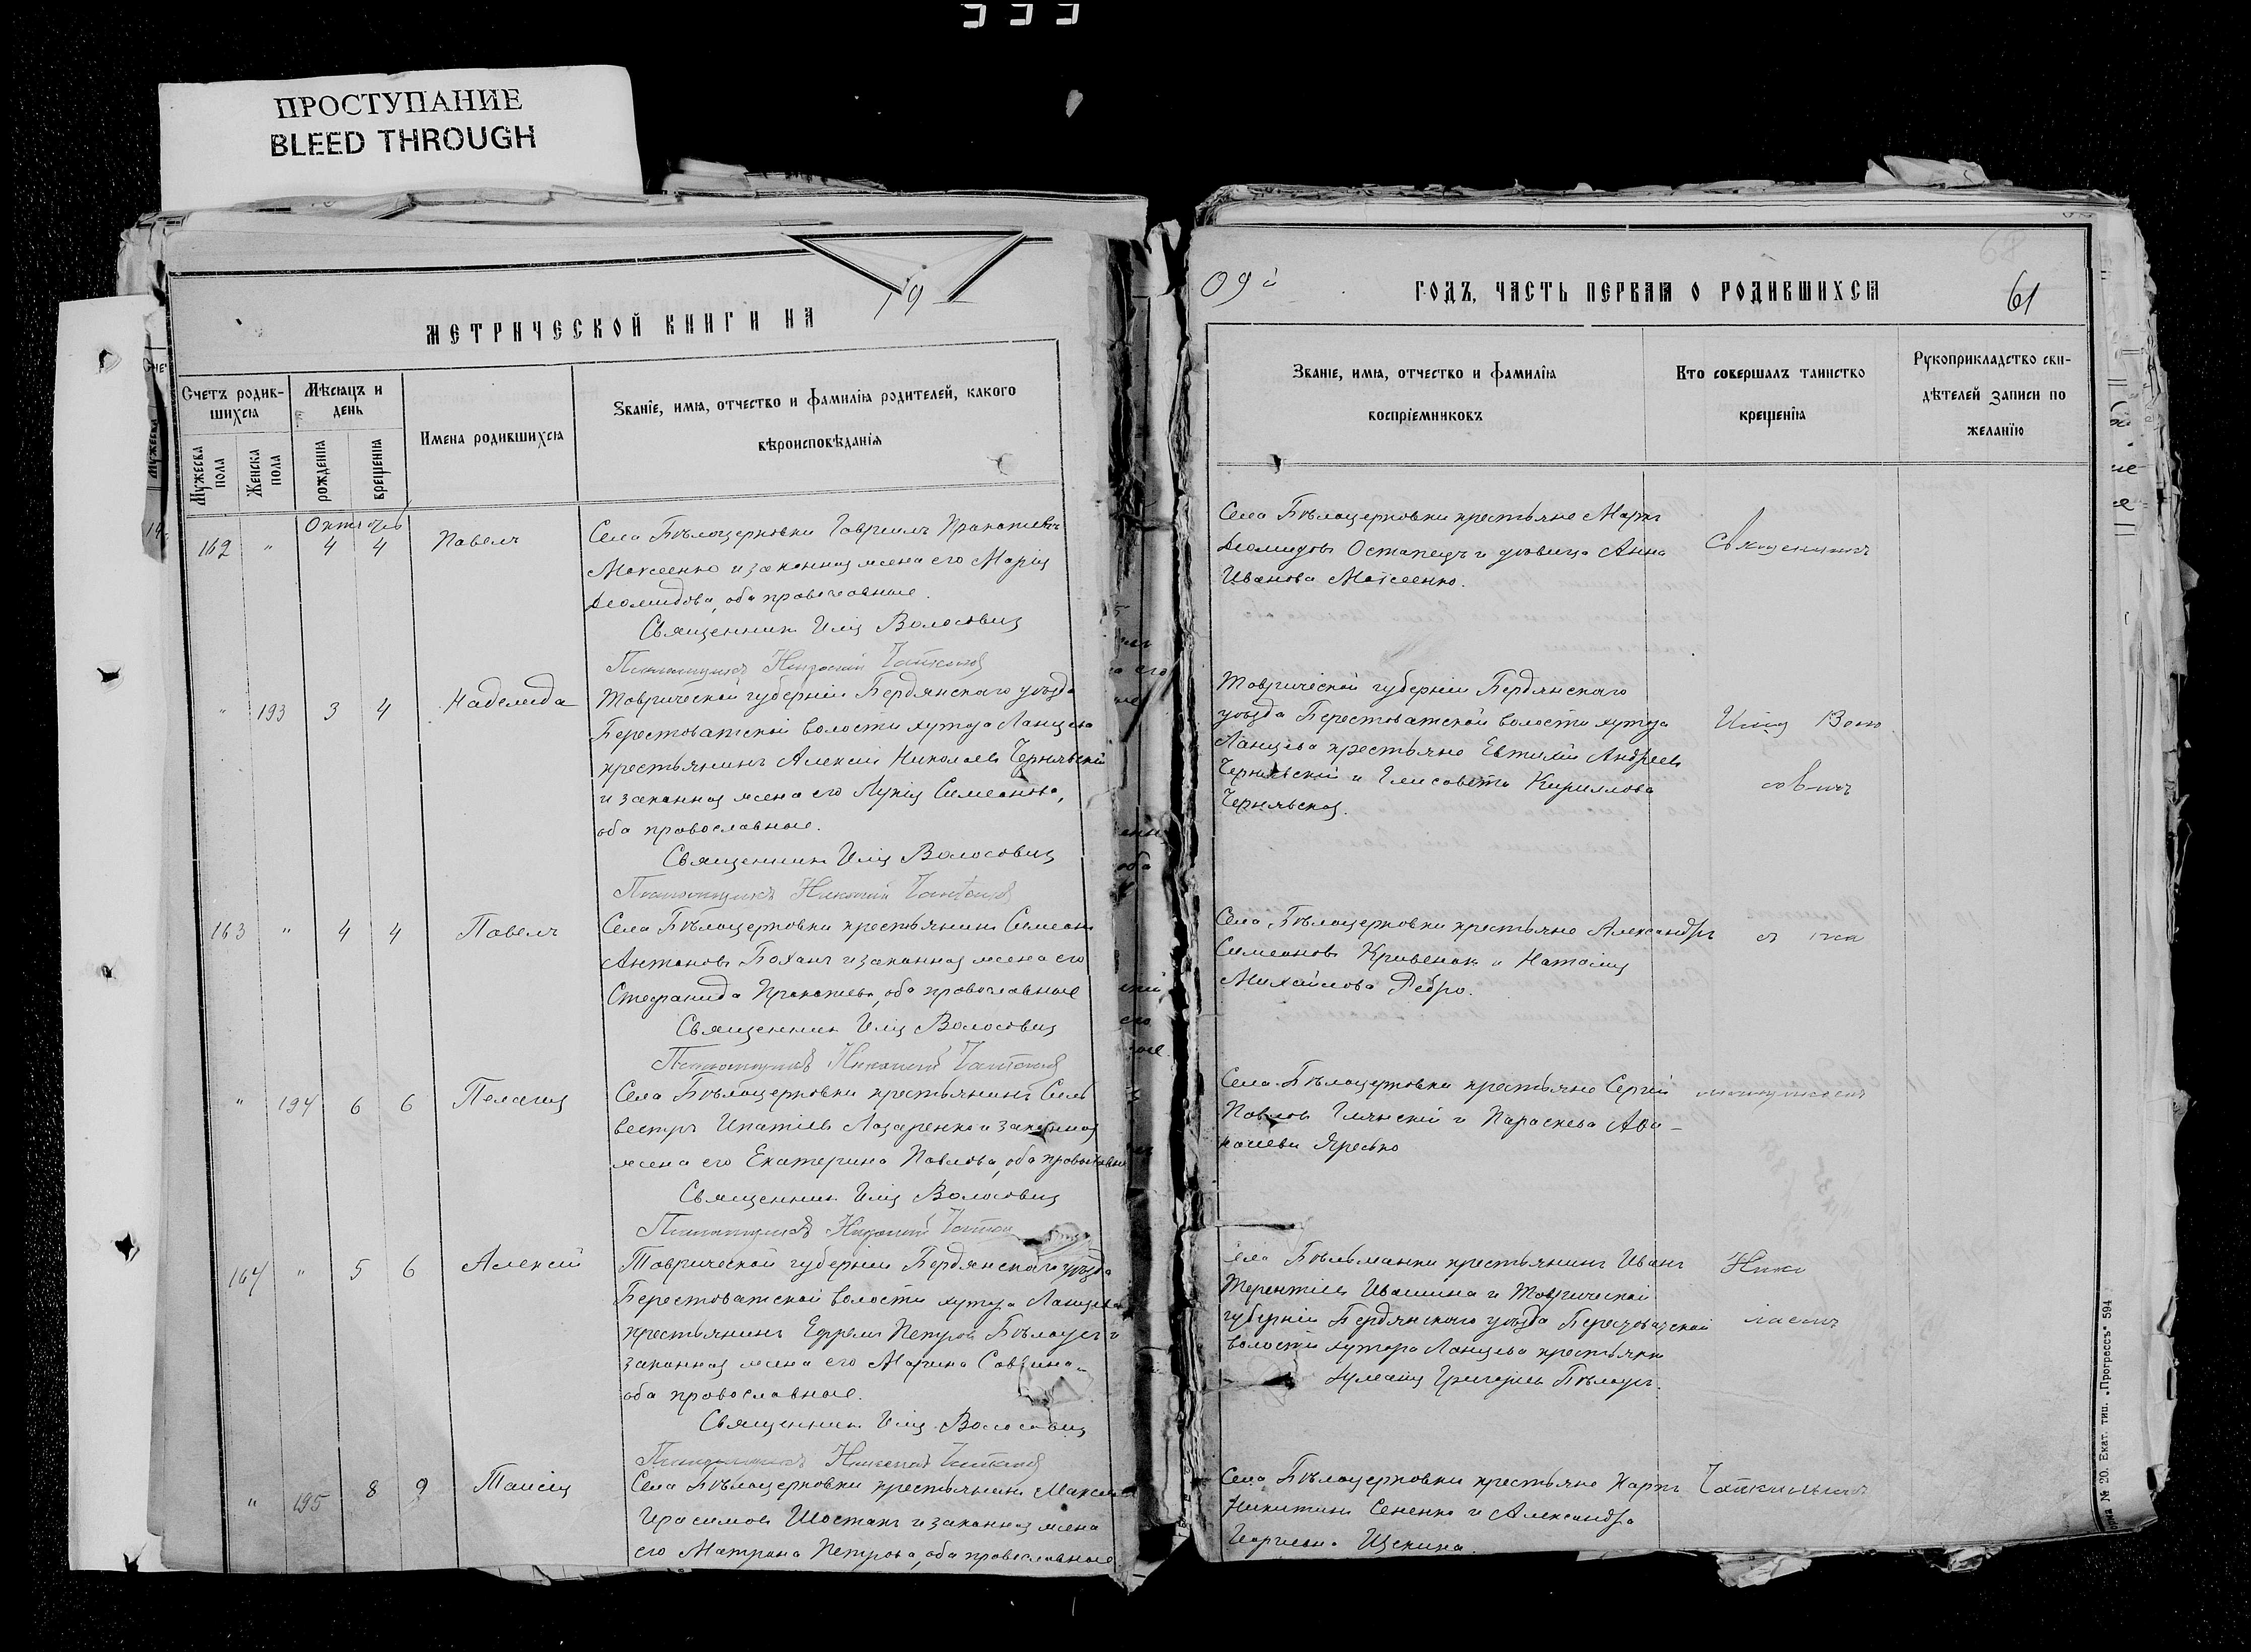 333
ПРОСТУПАНИЕ
BLEED THROUGH
МЕТРИЧЕСКОЙ КНИГИ НА
19
Счетъ родив-
шихся
Мѣсяцъ и
день
Имена родившихся
Званіе, имя, отчество и фамилія родителей, какого
вѣроисповѣданія
Мужеска
пола
Женска
пола
рожденія
крещенія
Октябрь
162 " 4 4 Павелъ
Села Бѣлоцерковки Гавриилъ Прокопіевъ
Моисеенко и законная жена его Марія
Діомидова, оба православные.
Священникъ Илія Волосовичъ
" 193 3 4 Надежда
Таврической губерніи Бердянскаго уѣзда
Берестоватской волости хутора Ланцева
крестьянинъ Алексій Николаевъ Чернявскій
и законная жена его Лукія Симеонова,
оба православные.
Священникъ Илія Волосовичъ
163 " 4 4 Павелъ
Села Бѣлоцерковки крестьянинъ Симеонъ
Антоновъ Боханъ и законная жена его
Стефанида Прокопіева, оба православные
Священникъ Илія Волосовичъ
" 194 6 6 Пелагія
Села Бѣлоцерковки крестьянинъ Силь
вестръ Ипатіевъ Лазаренко и законная
жена его Екатерина Павлова, оба православные
Священникъ Илія Волосовичъ
164 " 5 6 Алексій
Таврической губерніи Бердянскаго уѣзда
Берестоватской волости хутора Ланцева
крестьянинъ Ефремъ Петровъ Бѣлоусъ и
законная жена его Марина Саввина
оба православные.
Священникъ Илія Волосовичъ
" 195 8 9 Таисія
Села Бѣлоцерковки крестьянинъ Максимъ
Герасимовъ Шостакъ и законная жена
его Матрона Петрова, оба православные
09й
ГОДЪ, ЧАСТЬ ПЕРВАЯ О РОДИВШИХСЯ
61
Званіе, имя, отчество и фамилія
воспріемниковъ
Кто совершалъ таинство
крещенія
Рукоприкладство сви-
дѣтелей записи по
желанію
Села Бѣлоцерковки крестьяне Маркъ
Діомидовъ Остапецъ и дѣвица Анна
Иванова Моисеенко.
Священникъ
Таврической губерніи Бердянскаго
уѣзда Берестоватской волости хутора
Ланцева крестьяне Евтихій Андреевъ
Чернявскій и Елисавета Кириллова
Чернявская.
Илія Воло
совичъ
Села Бѣлоцерковки крестьяне Александръ
Симеоновъ Кривенокъ и Наталія
Михайлова Ребро.
съ пса
Села Бѣлоцерковки крестьяне Сергій
Павловъ и Параскева
Яресько
ломщикомъ
Села Бѣльманки крестьянинъ Иванъ
Терентіевъ Ивашина и Таврической
губерніи Бердянскаго уѣзда Берестоватской
волости хутора Ланцева крестьянка
Григоріева Бѣлоусъ.
Нико
лаемъ
Села Бѣлоцерковки крестьяне Карпъ
Никитинъ Сененко и Александра
Георгіева Щекина.
№ 20. Екат. тип. „Прогрессъ" 594